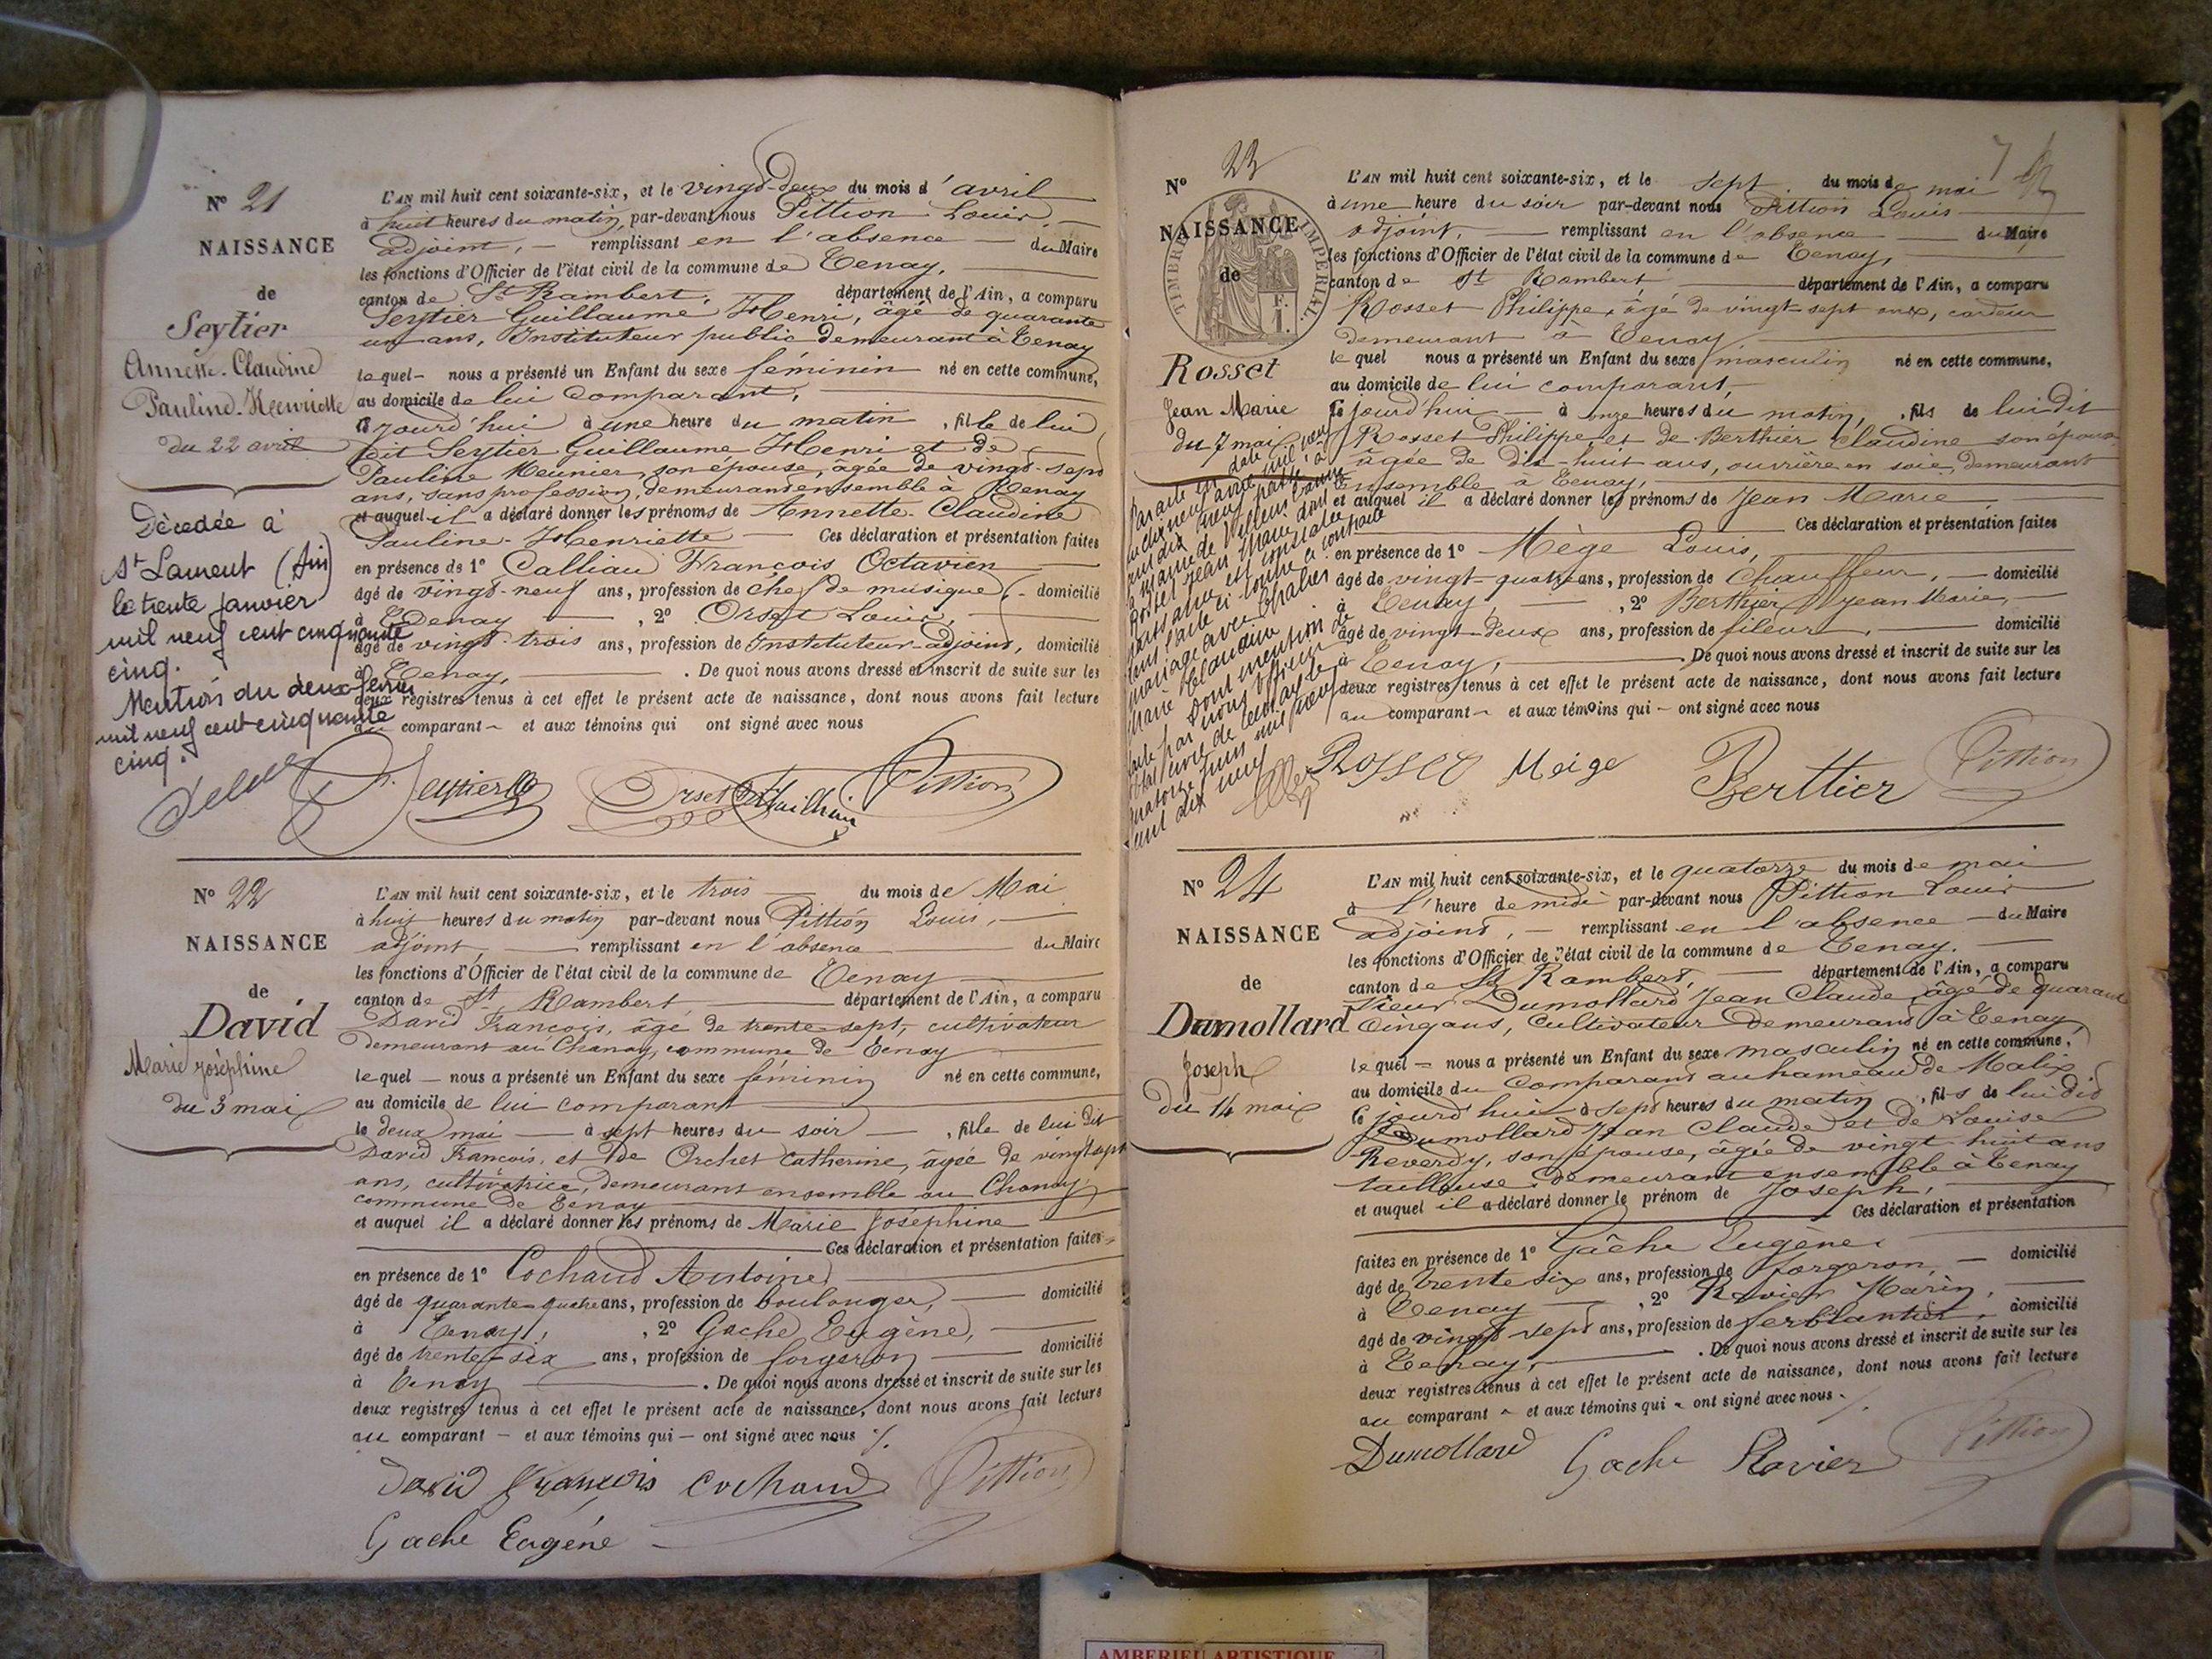 N° 21
NAISSANCE
de
Seytier
Annette-Claudine
Pauline-Henriette
du 22 avril
Décedée à
St Laurent (Ain)
le trente janvier
mil neuf cent cinquante
cinq.
Mention du deux février
mil neuf cent cinquante
cinq.
L'AN mil huit cent soixante-six, et le vingt-deux du mois d'avril
à huit heures du matin, par-devant nous Pittion Louis
adjoint, remplissant en l'absence du Maire
les fonctions d'Officier de l'état civil de la commune de Tenay,
canton de St Rambert, département de l'Ain, a comparu
Seytier Guillaume Henri, âgé de quarante
un ans, Instituteur public demeurant à Tenay
lequel nous a présenté un Enfant du sexe féminin né en cette commune,
au domicile de lui comparant,
ce jourd'hui à une heure du matin, fille de lui
dit Seytier Guillaume Henri et de
Pauline Meunier, son épouse, âgée de vingt-sept
ans, sans profession, demeurant ensemble à Tenay
et auquel il a déclaré donner les prénoms de Annette-Claudine
Pauline-Henriette Ces déclaration et présentation faites
en présence de 1° Calliau François Octavien
âgé de vingt-neuf ans, profession de chef de musique, domicilié
à Tenay, 2° Orset Louis,
âgé de vingt-trois ans, profession de Instituteur-adjoint, domicilié
à Tenay, . De quoi nous avons dressé et inscrit de suite sur les
deux registres tenus à cet effet le présent acte de naissance, dont nous avons fait lecture
au comparant et aux témoins qui ont signé avec nous
Seytier Orset Pittion
N° 22
NAISSANCE
de
David
Marie Joséphine
du 3 mai
L'AN mil huit cent soixante-six, et le trois du mois de Mai
à huit heures du matin par-devant nous Pittion Louis,
adjoint, remplissant en l'absence du Maire
les fonctions d'Officier de l'état civil de la commune de Tenay
canton de St Rambert département de l'Ain, a comparu
David François, âgé de trente-sept, cultivateur
demeurant au Chanay, commune de Tenay
lequel nous a présenté un Enfant du sexe féminin né en cette commune,
au domicile de lui comparant
le deux mai à sept heures du soir, fille de lui dit
David François, et de Orchet Catherine, âgée de vingt-sept
ans, cultivatrice, demeurant ensemble au Chanay,
commune de Tenay
et auquel il a déclaré donner les prénoms de Marie Joséphine
Ces déclaration et présentation faites
en présence de 1° Cochand Antoine,
âgé de quarante-quatre ans, profession de boulanger, domicilié
à Tenay, , 2° Gache Eugène,
âgé de trente-six ans, profession de forgeron domicilié
à Tenay . De quoi nous avons dressé et inscrit de suite sur les
deux registres tenus à cet effet le présent acte de naissance, dont nous avons fait lecture
au comparant – et aux témoins qui – ont signé avec nous
David François Cochand Pittion
Gache Eugéne
7
N° 23
TIMBRE IMPERIAL
NAISSANCE
de
F. 1.
Rosset
Jean Marie
du 7 mai
L'AN mil huit cent soixante-six, et le sept du mois de mai
à une heure du soir par-devant nous Pittion Louis
adjoint, remplissant en l'absence du Maire
les fonctions d'Officier de l'état civil de la commune de Tenay,
canton de St Rambert département de l'Ain, a comparu
Rosset Philippe, âgé de vingt-sept ans, cardeur
demeurant à Tenay
lequel nous a présenté un Enfant du sexe masculin né en cette commune,
au domicile de lui comparant,
ce jourd'hui à onze heures du matin, fils de lui dit
Rosset Philippe, et de Berthier Claudine son épouse
âgée de dix-huit ans, ouvrière en soie, demeurant
ensemble à Tenay,
et auquel il a déclaré donner les prénoms de Jean Marie
Ces déclaration et présentation faites
en présence de 1° Mège Louis,
âgé de vingt-quatre ans, profession de Chauffeur, domicilié
à Tenay, , 2° Berthier Jean Marie,
âgé de vingt-deux ans, profession de fileur, domicilié
à Tenay, . De quoi nous avons dressé et inscrit de suite sur les
deux registres tenus à cet effet le présent acte de naissance, dont nous avons fait lecture
au comparant – et aux témoins qui – ont signé avec nous
Rosset Meige Berttier Pittion
Rosset Jean Marie dont
mariage avec Chalier
Marie
Dont mention
faite par nous officier de
quatorze juin mil neuf
cent dix neuf
N° 24
NAISSANCE
de
Dumollard
Joseph
du 14 mai
L'AN mil huit cent soixante-six, et le quatorze du mois de mai
à l'heure de midi par-devant nous Pittion Louis
adjoint, – remplissant en l'absence – du Maire
les fonctions d'Officier de l'état civil de la commune de Tenay.
canton de St Rambert, département de l'Ain, a comparu
sieur Dumollard Jean Claude, âgé de quarante
cinq ans, Cultivateur demeurant à Tenay,
lequel – nous a présenté un Enfant du sexe masculin né en cette commune,
au domicile du Comparant au hameau de Malix
ce jourd'hui à sept heures du matin, fils de lui dit
Dumollard Jean Claude et de Louise
Reverdy, son épouse, âgée de vingt huit ans
tailleuse demeurant ensemble à Tenay
et auquel il a déclaré donner le prénom de Joseph,
Ces déclaration et présentation
faites en présence de 1° Gâche Eugène
âgé de trente six ans, profession de forgeron, – domicilié
à Tenay , 2° Ravier Marin,
âgé de vingt sept ans, profession de ferblantier, domicilié
à Tenay, . De quoi nous avons dressé et inscrit de suite sur les
deux registres tenus à cet effet le présent acte de naissance, dont nous avons fait lecture
au comparant et aux témoins qui ont signé avec nous.
Dumollard Gache Ravier Pittion
AMBERIEU ARTISTIQUE